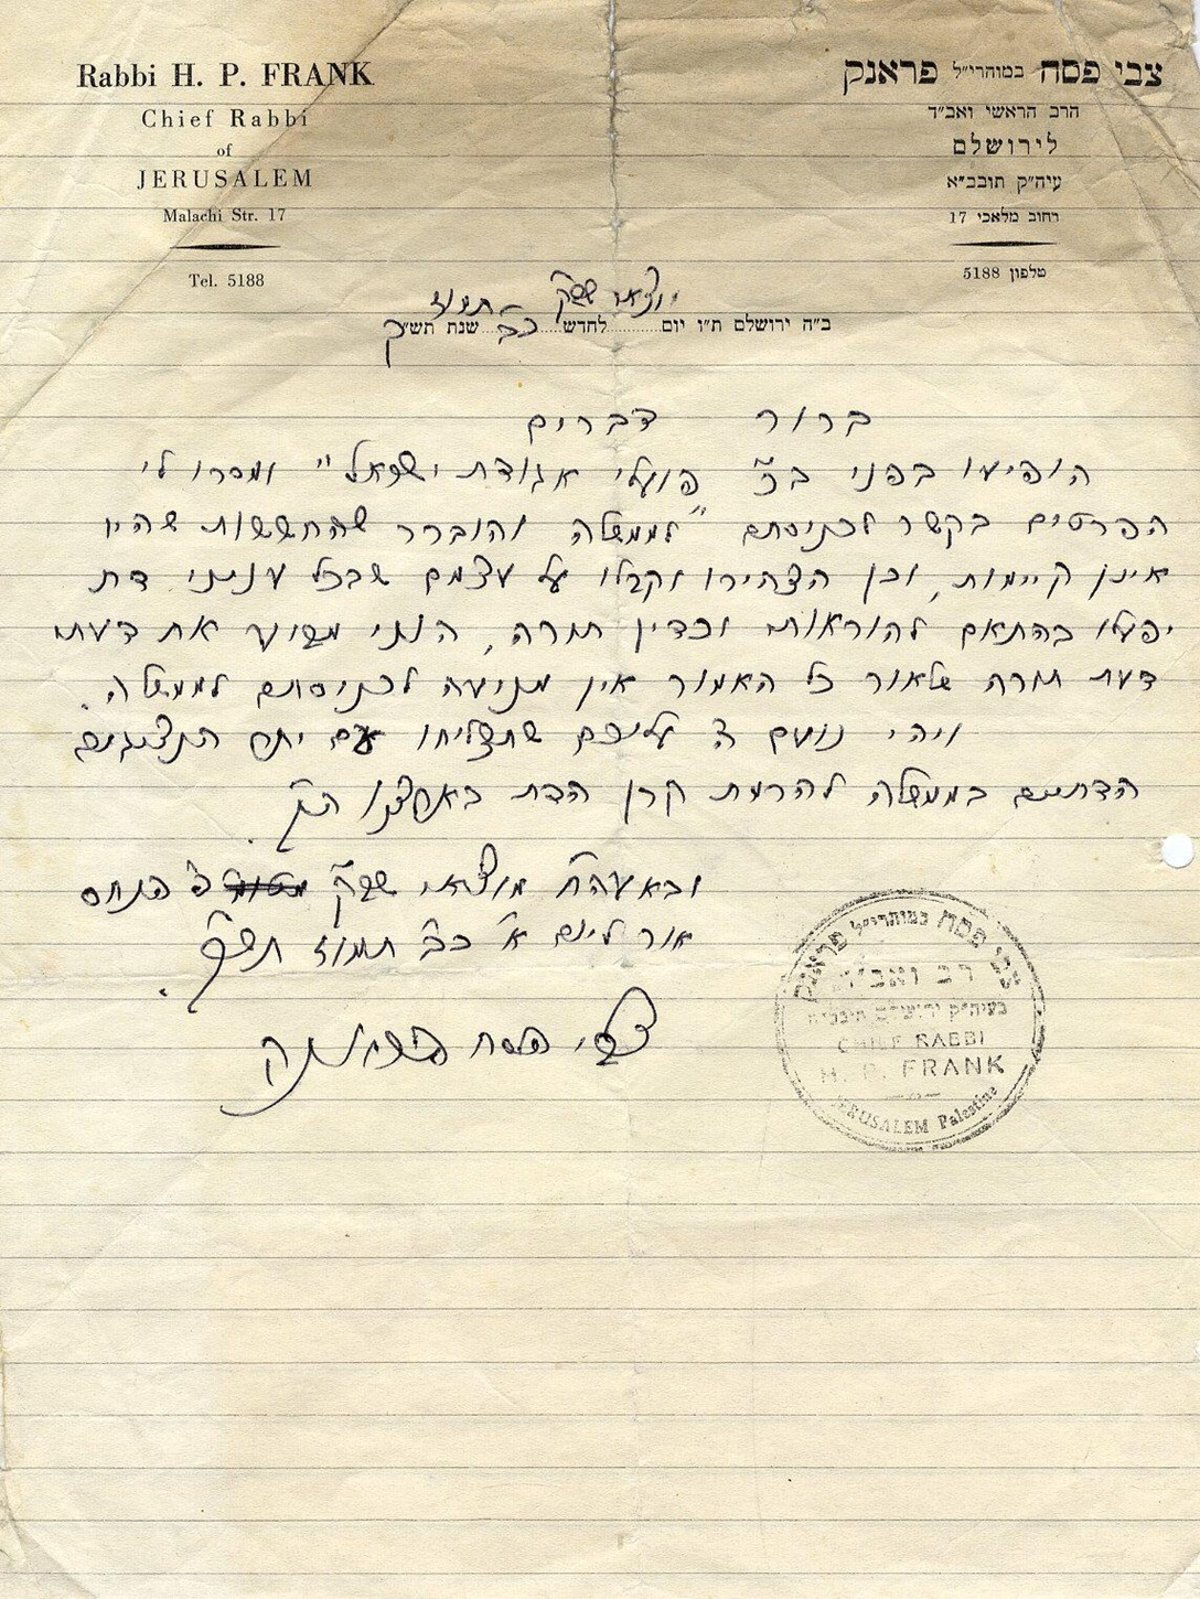 Rabbi H. P. FRANK
Chief Rabbi
of
JERUSALEM
Malachi Str. 17
Tel. 5188
צבי פסח במוהרי״ל פראנק
הרב הראשי ואב״ד
לירושלם
עיה״ק תובב״א
רחוב מלאכי 17
טלפון 5188
מוצאי שב״ק תמוז
ב״ה ירושלם ת״ו יום לחדש כב שנת תש״ך
ברור דברים
הופיעו בפני ב״כ פועלי אגודת ישראל" ומסרו לי
הפרטים בקשר לכניסתם "לממשלה והוברר שהחששות שהיו
אינן קיימות, וכן הצהירו וקבלו על עצמם שבכל עניני דת
יפעלו בהתאם להוראות וכדין תורה, הנני משוה את דעתי
דעת תורה שלאור כל האמור אין מניעה לכניסתם לממשלה.
ויהי נועם ה' עליכם שתצליחו עם יתר הנציגים
הדתיים בממשלה להרמת קרן הדת בארצנו הק'.
ובאעה״ח מוצאי שב״ק פ' פנחס
אור ליום א' כ״ב תמוז תש״ך.
צבי פסח פראנק
צבי פסח במוהרי״ל פראנק
רב ואב״ד
בעיה״ק ירושלם תובב״א
CHIEF RABBI
H. P. FRANK
JERUSALEM Palestine